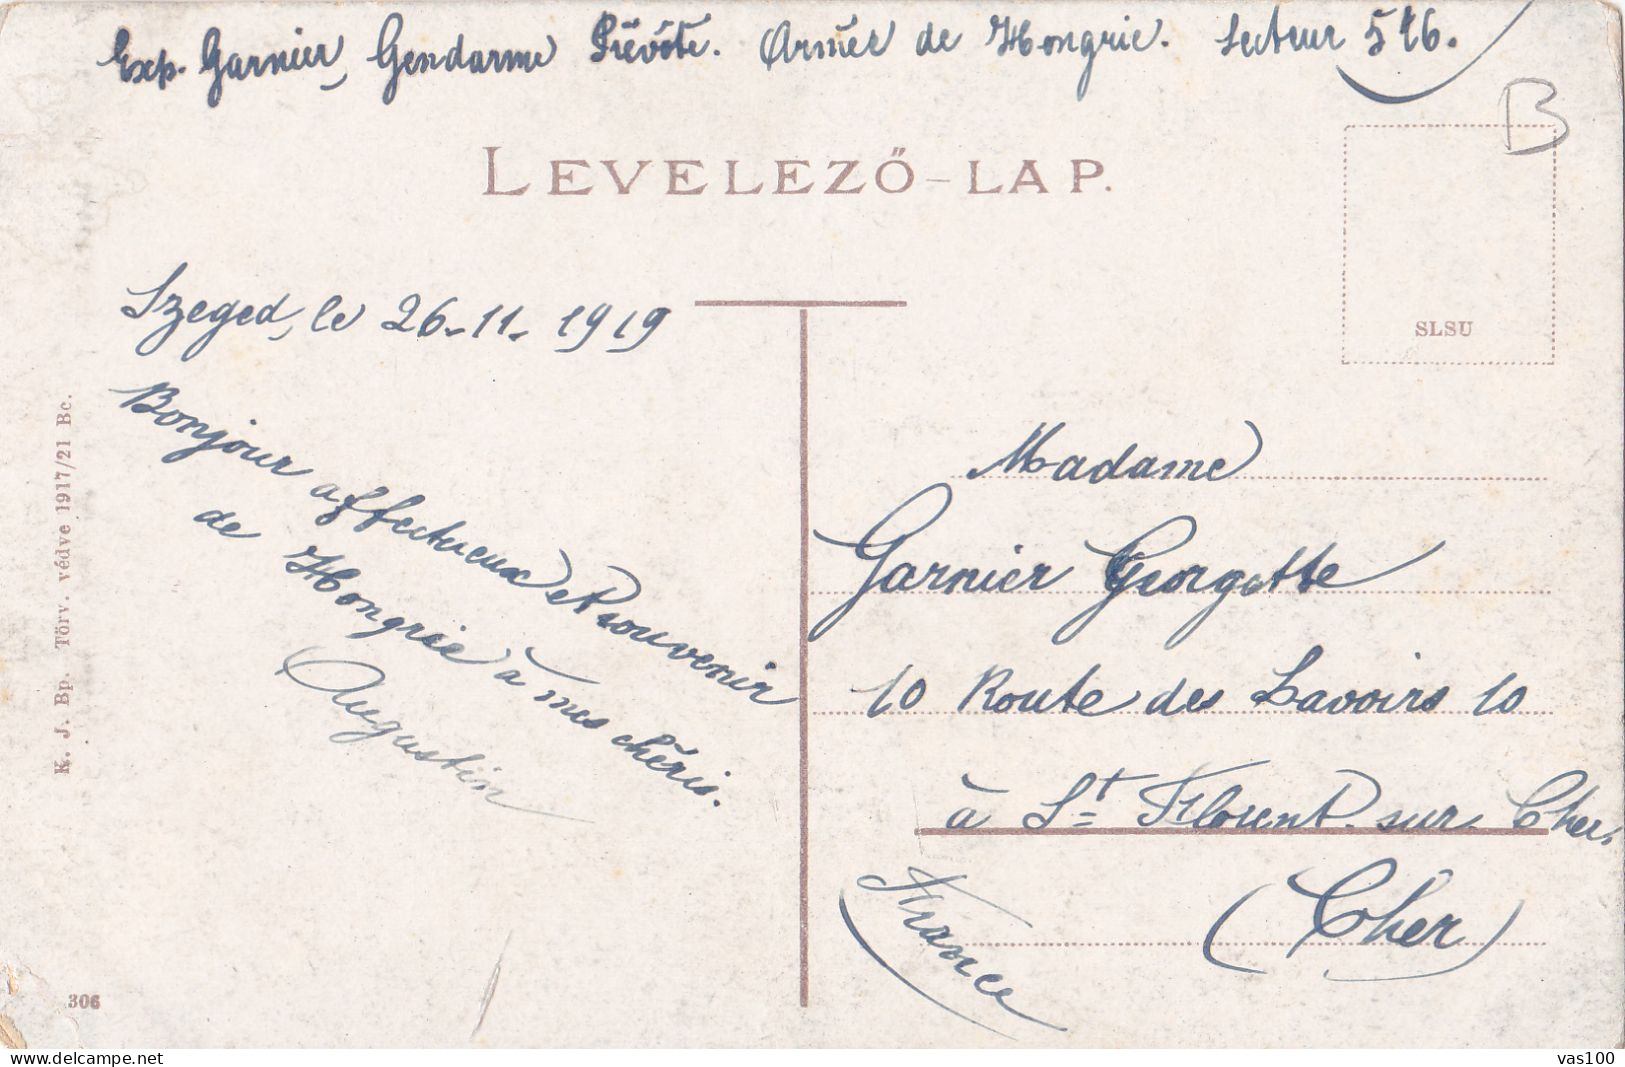 Exp. Garnier, Gendarme Prévôté. Armée de Hongrie. Secteur 516.
B
LEVELEZŐ-LAP.
SLSU
Szeged, le 26-11-1919
Bonjour affectueux et souvenir
de Hongrie à mes chéris.
Augustin
Madame
Garnier Georgette
10 Route des Lavoirs 10
à St Florent-sur-Cher.
(Cher)
France
K. J. Bp. Törv. védve 1917/21 Bc.
306
delcampe.net
vas100